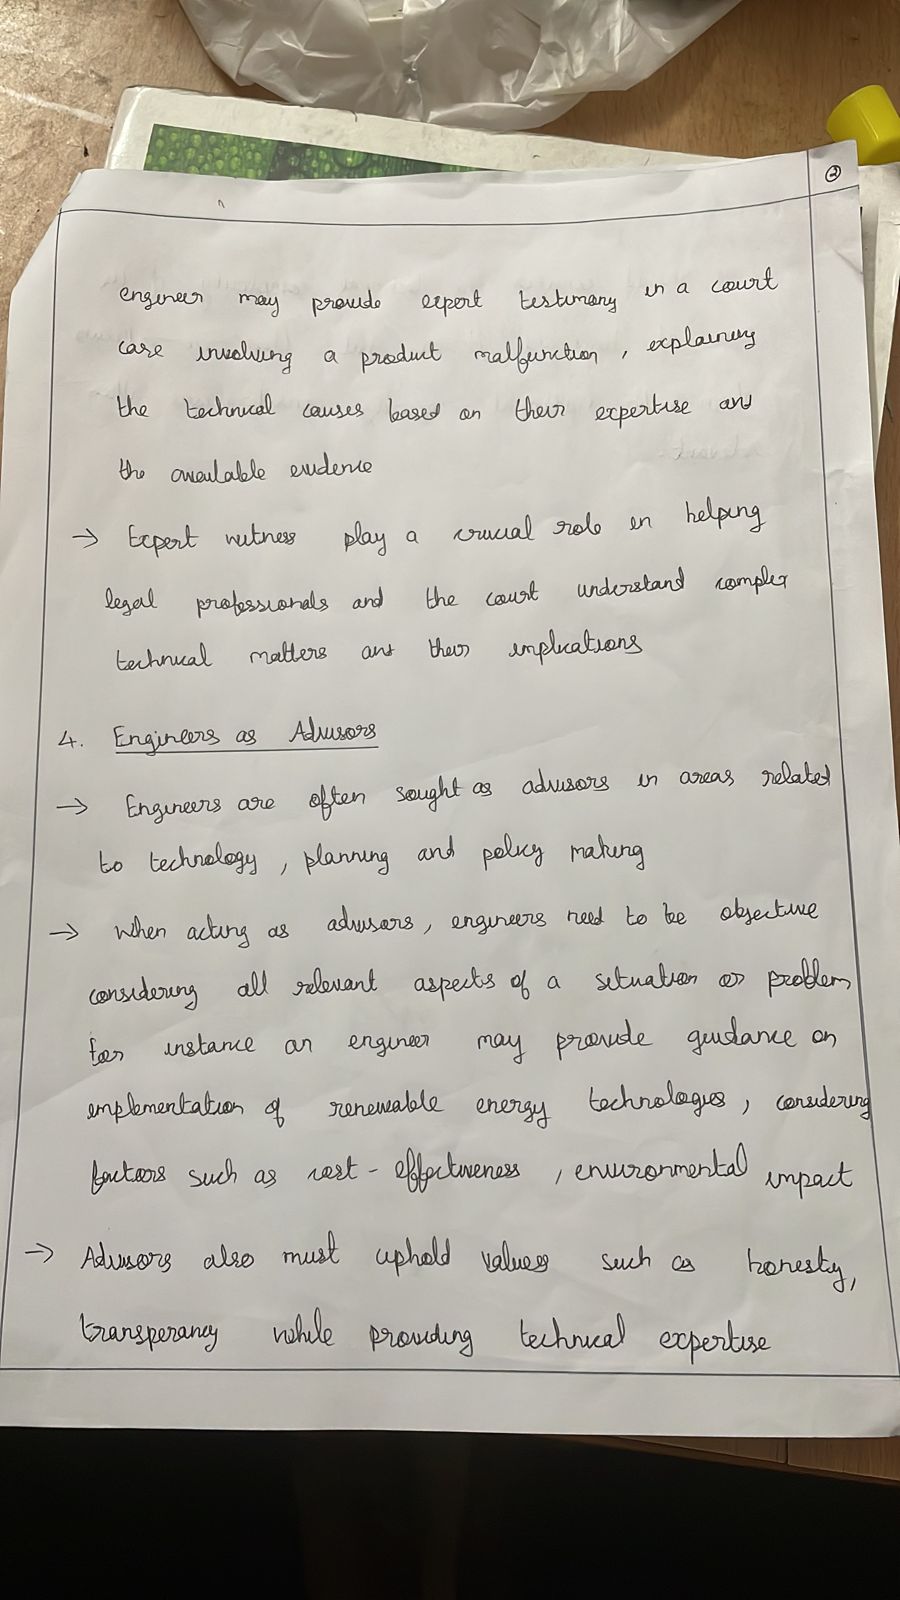 2
engineer may provide expert testimony in a court
case involving a product malfunction, explaining
the technical causes based on their expertise and
the available evidence
→ Expert witness play a crucial role in helping
legal professionals and the court understand complex
technical matters and their implications
4. Engineers as Advisors
→ Engineers are often sought as advisors in areas related
to technology, planning and policy making
→ When acting as advisors, engineers need to be objective
considering all relevant aspects of a situation or problem
for instance an engineer may provide guidance on
implementation of renewable energy technologies, considering
factors such as cost-effectiveness, environmental impact
→ Advisors also must uphold values such as honesty,
transperancy while providing technical expertise